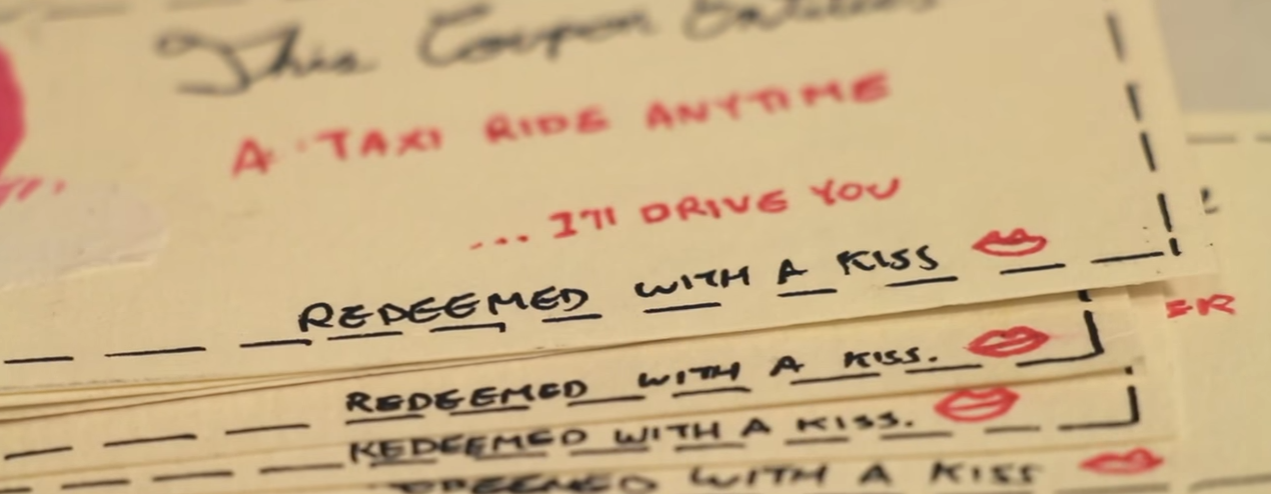 This Coupon Entitles
A TAXI RIDE ANYTIME
... I'll DRIVE YOU
REDEEMED WITH A KISS
ER
REDEEMED WITH A KISS.
REDEEMED WITH A KISS.
REDEEMED WITH A KISS